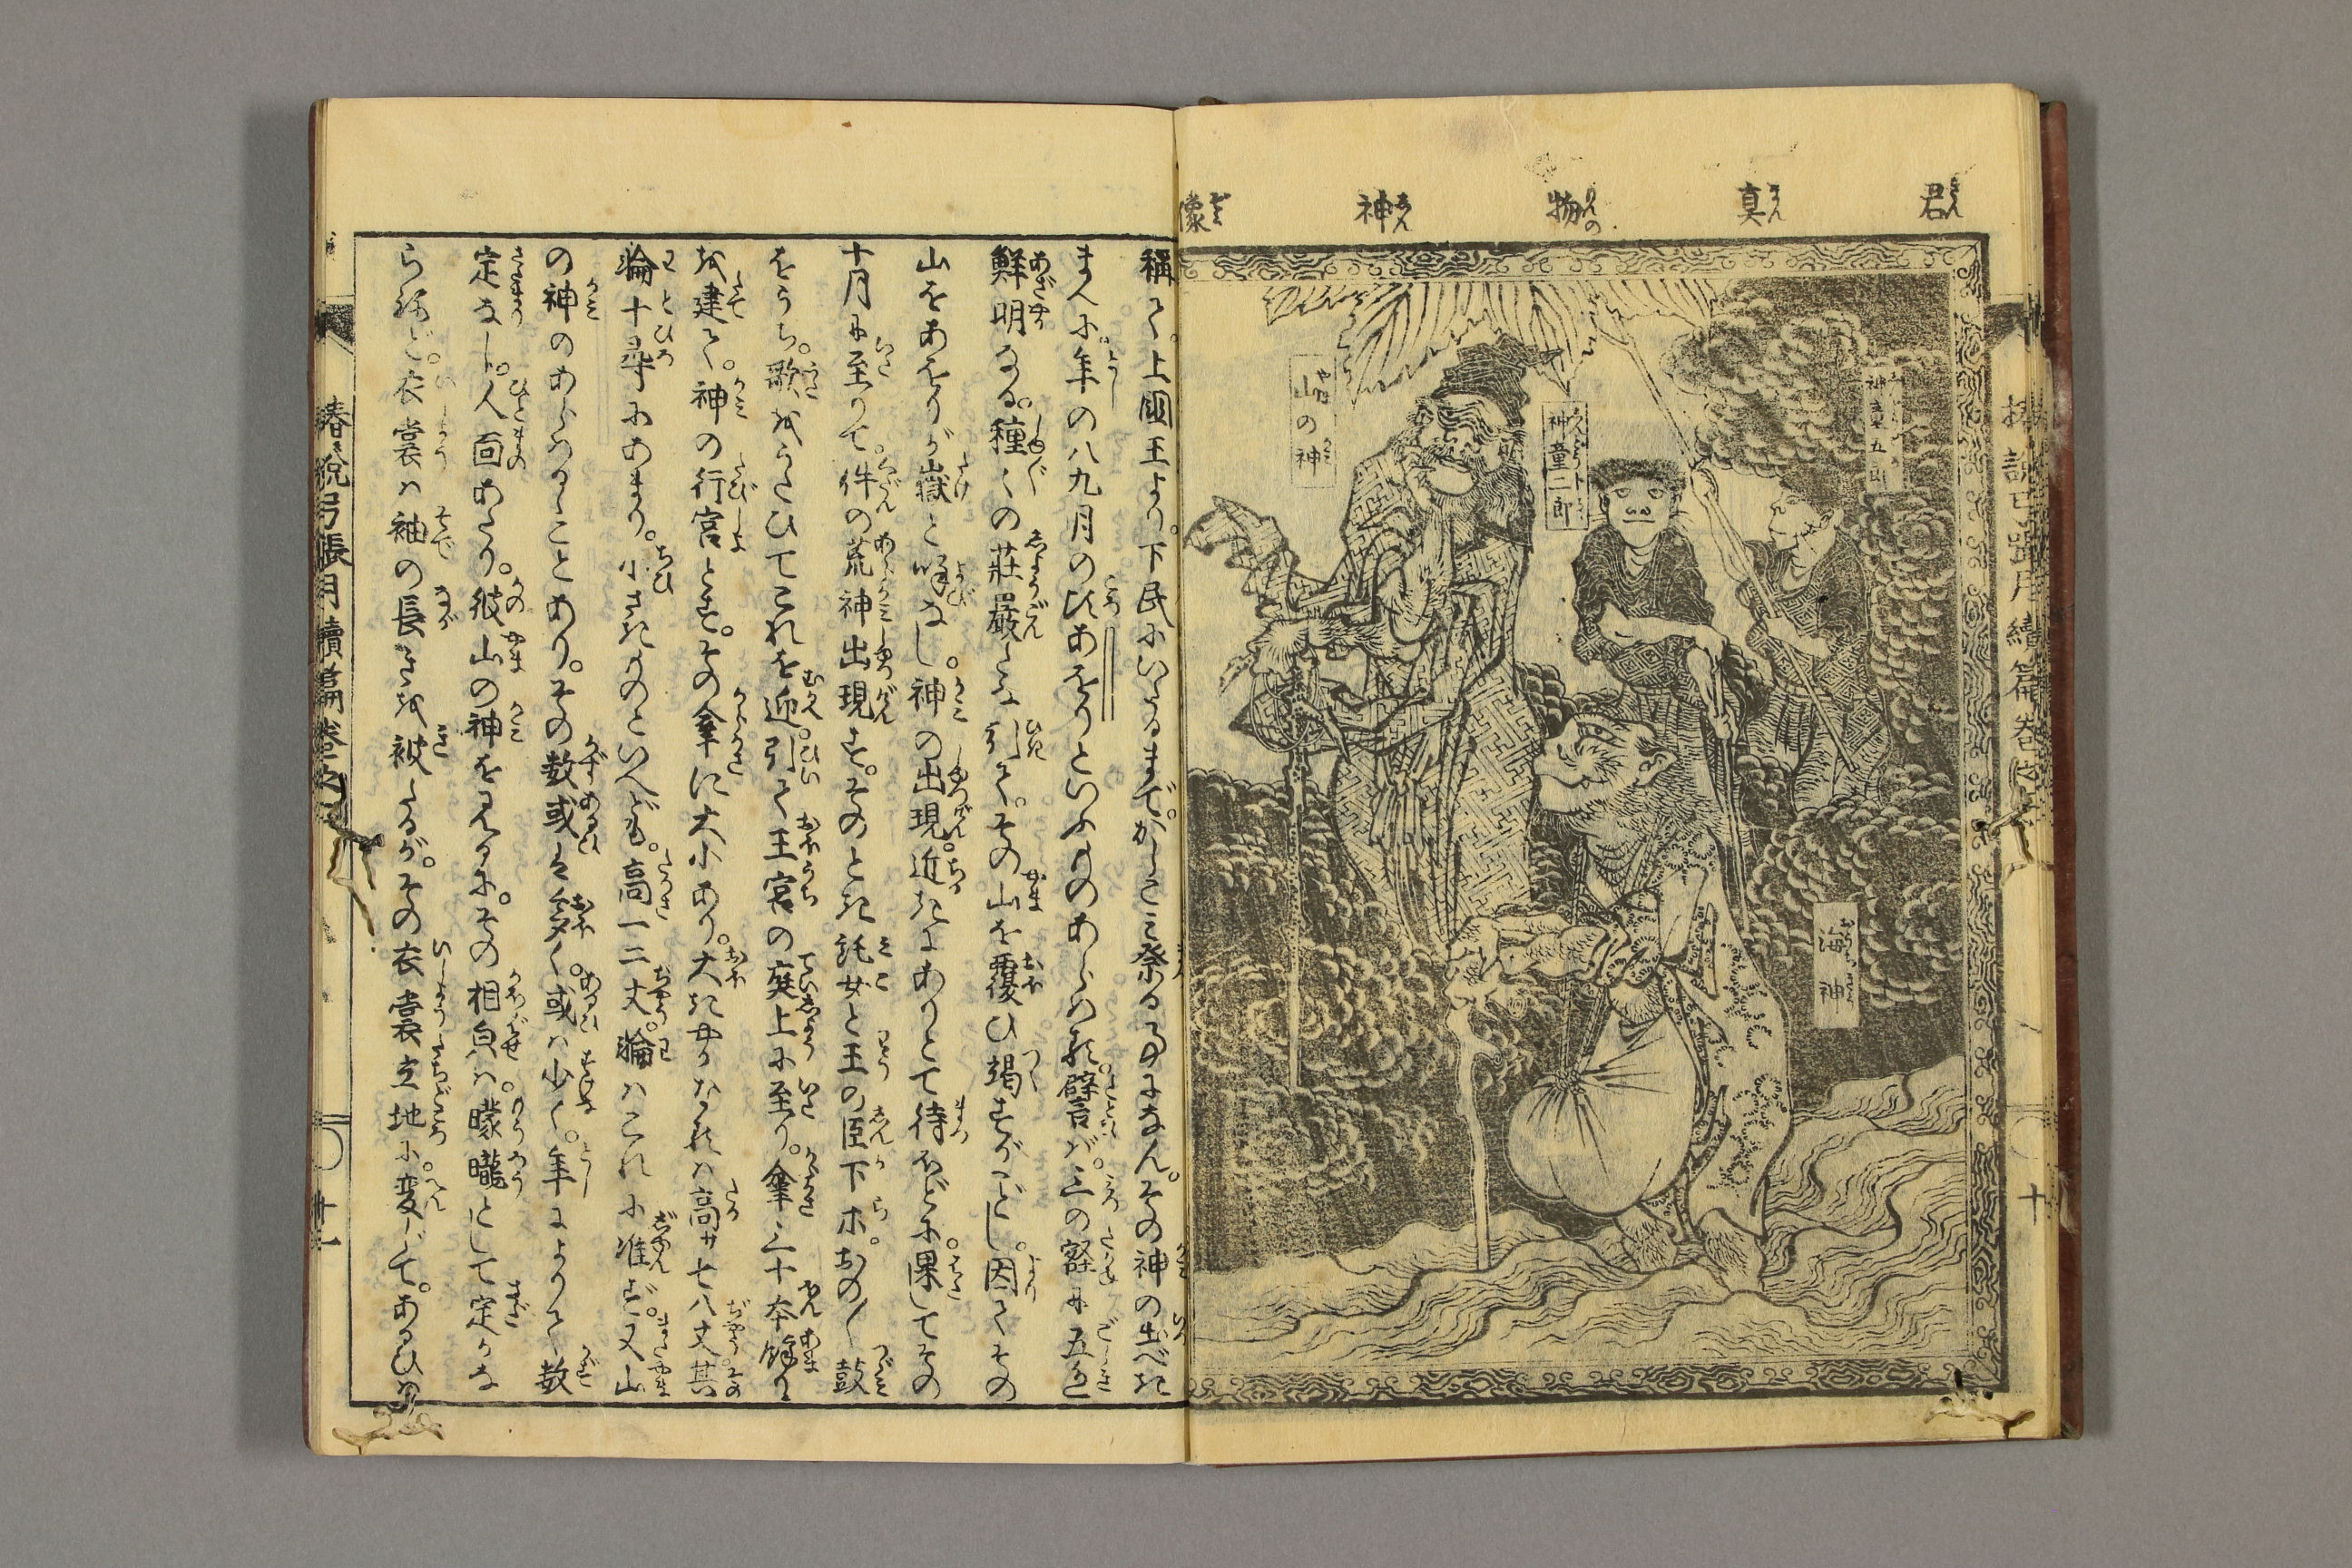 君 真 物 神 像
君きん 真まん 物もんの 神しん 像ぞう
神童五郎
海神
神童二郎
山の神
椿説弓張月續篇巻之
十
稱て。上國王より。下民にいたるまで。かしこみ祭るものになん。その神の出べき
まへに。年の八九月の比あをりといふものあらはれ。譬ば。三の蓋に五色
鮮明なる。種〻の莊嚴したる引て。その山を覆ひ竭すがごとし。因てその
山をあをりが嶽と喚なし。神の出現。近きにありとて待ほどに。果してその
十月に至りて。件の荒神出現す。そのとき託女と王の臣下ホ。おの〳〵鼓
をうち。歌をうたひてこれを迎。引て王宮の庭上に至り。傘三十本餘り
を建て。神の行宮とす。その傘に大小あり。大きやかなるは高サ七八丈其
輪十尋にあまり。小さきものといへども。高一二丈。輪はこれに准ず。又山
の神のあらはるゝことあり。その数或は多く。或は少く。年によりて数
定なし。人面あたり。彼山の神をみるに。その相㒵は。曚曨として定かな
らねど。衣裳は袖の長きを被たるが。その衣裳立地に変じて。あるひは
椿説弓張月續篇巻之
十一